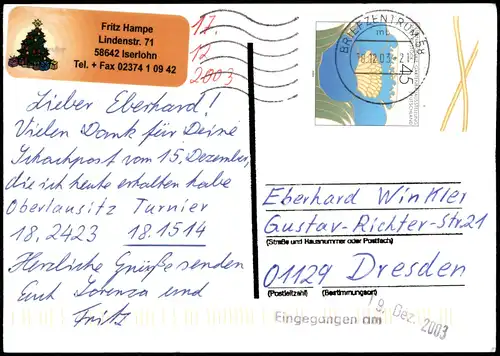 Fritz Hampe
Lindenstr. 71
58642 Iserlohn
Tel. + Fax 02374 1 09 42
17.
12
2003
BRIEFZENTRUM 58
mb
18.12.03-21
45
Lieber Eberhard!
Vielen Dank für Deine
Schachpost vom 15. Dezember,
die ich heute erhalten habe
Oberlausitz Turnier
18.2423 18.1514
Herzliche Grüße senden
Euch Lorenza und
Fritz
Eberhard Winkler
Gustav-Richter-Str. 21
(Straße und Hausnummer oder Postfach)
01129 Dresden
(Postleitzahl) (Bestimmungsort)
Eingegangen am 19. Dez. 2003